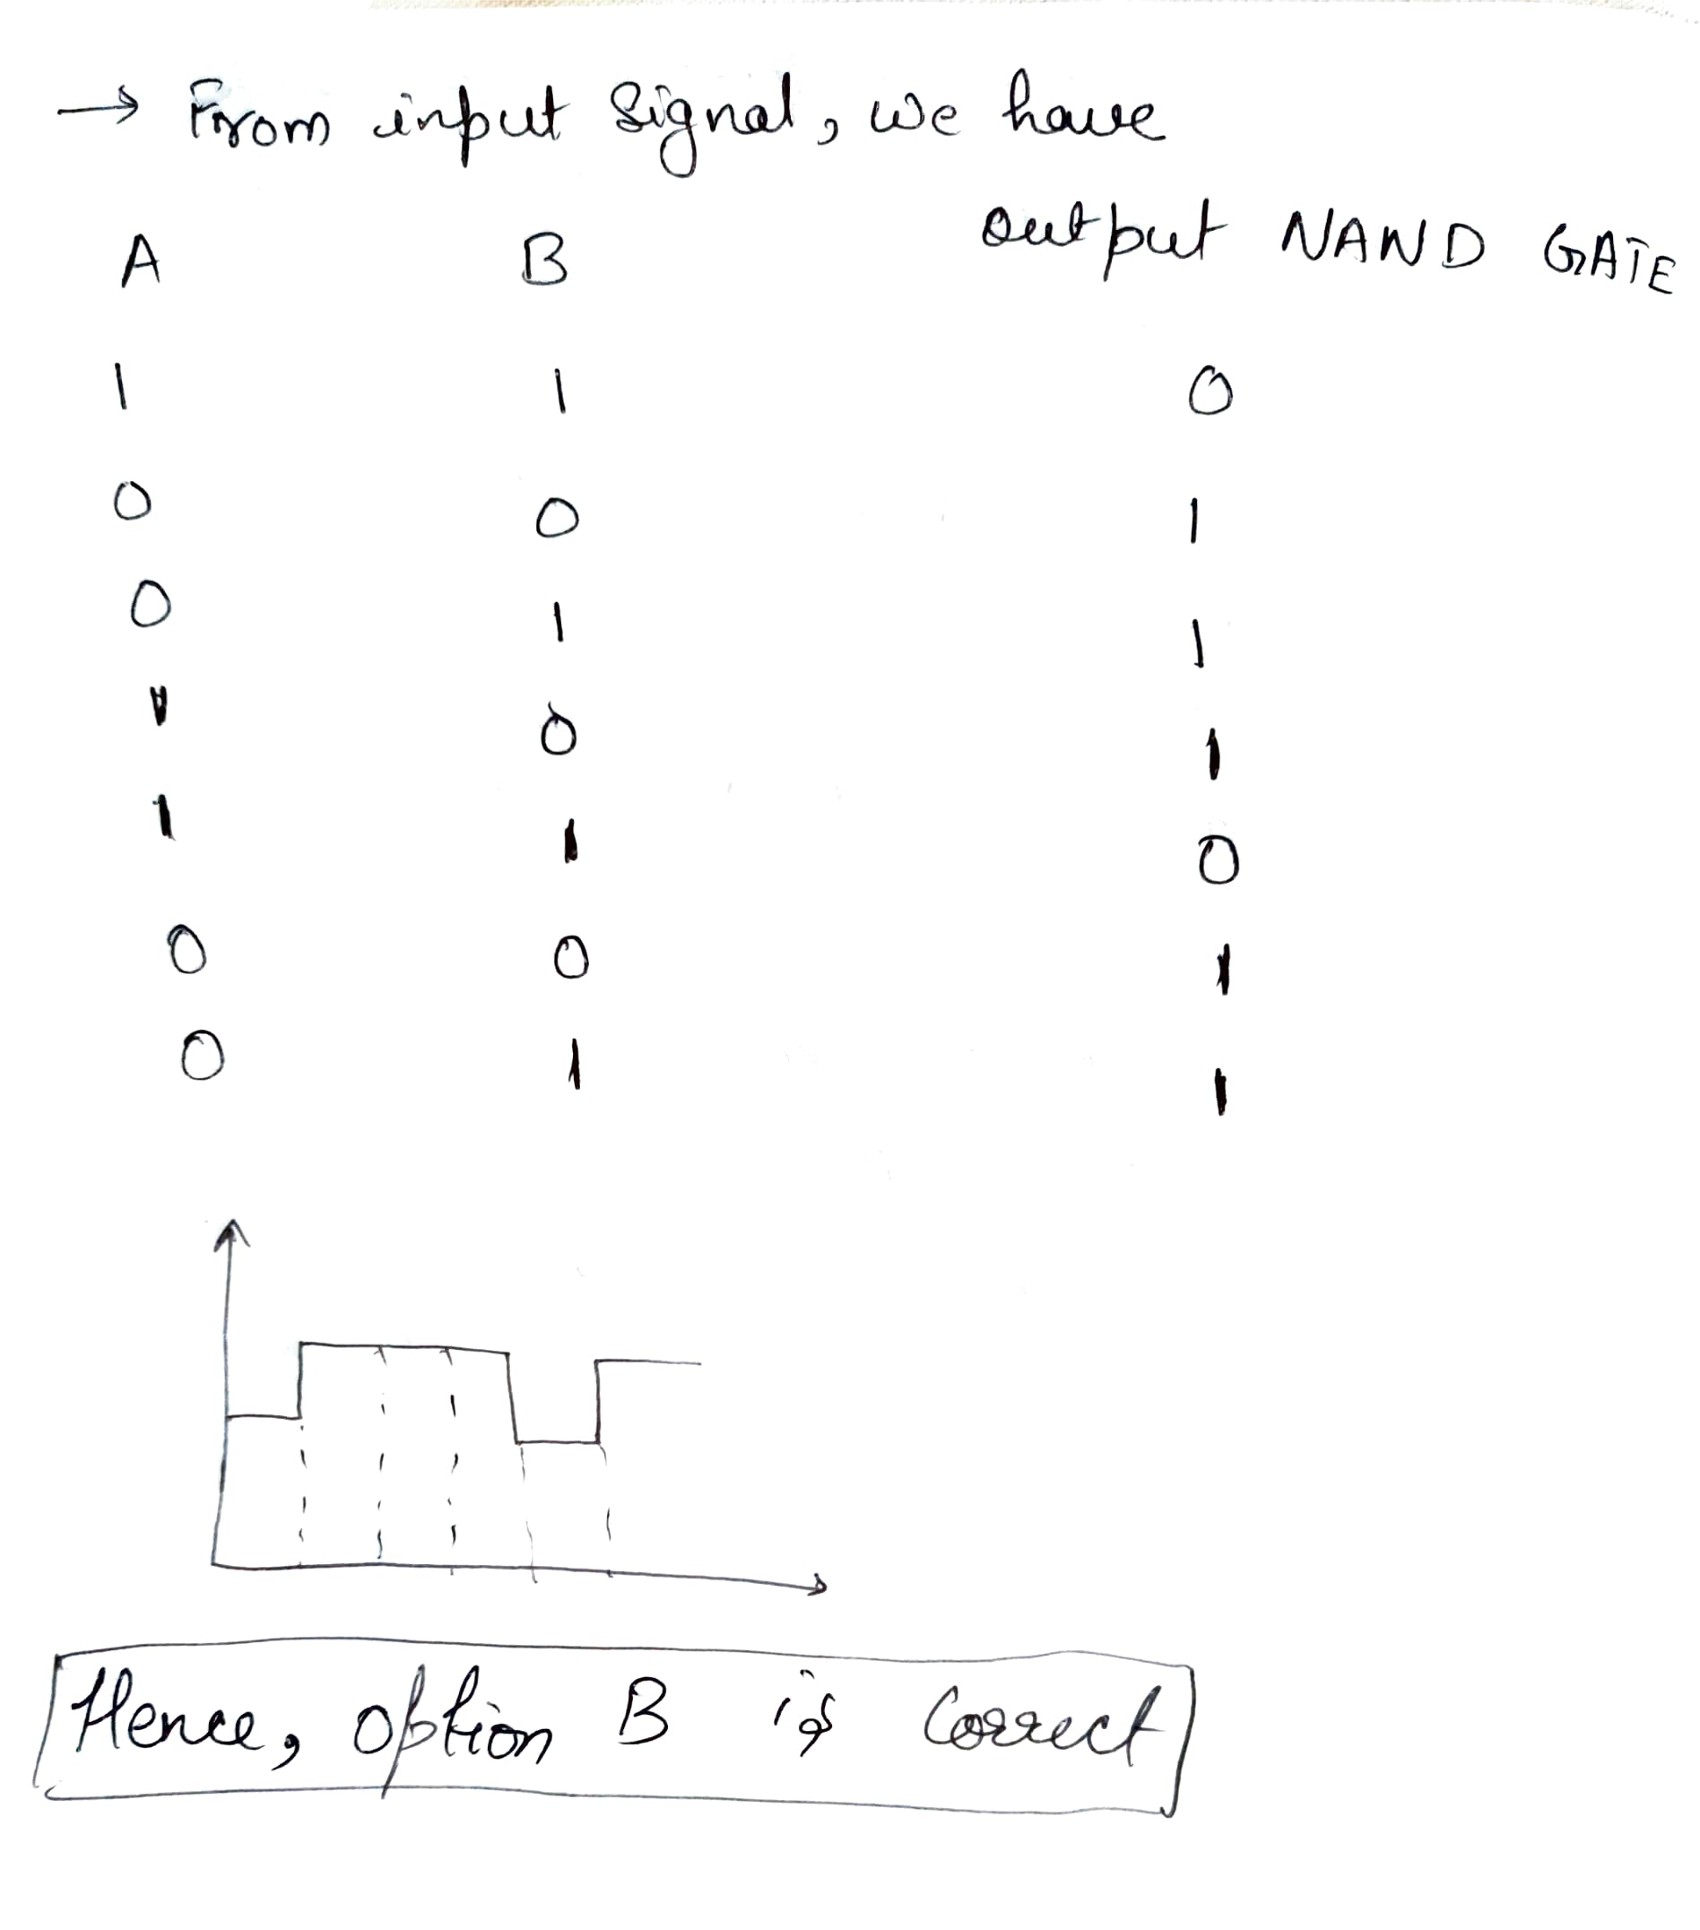 → From input signal, we have
A B output NAND GATE
1 1 0
0 0 1
0 1 1
1 0 1
1 1 0
0 0 1
0 1 1
Hence, option B is correct